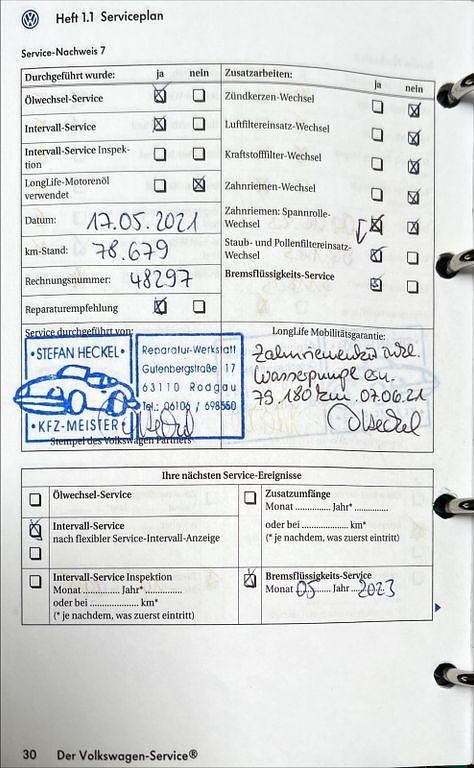 Heft 1.1 Serviceplan
Service-Nachweis 7
Durchgeführt wurde: ja nein
Ölwechsel-Service
Intervall-Service
Intervall-Service Inspek-
tion
LongLife-Motorenöl
verwendet
Datum: 17.05.2021
km-Stand: 78.679
Rechnungsnummer: 48297
Reparaturempfehlung
Zusatzarbeiten: ja nein
Zündkerzen-Wechsel
Luftfiltereinsatz-Wechsel
Kraftstofffilter-Wechsel
Zahnriemen-Wechsel
Zahnriemen: Spannrolle-
Wechsel
Staub- und Pollenfiltereinsatz-
Wechsel
Bremsflüssigkeits-Service
Service durchgeführt von:
• STEFAN HECKEL •
• KFZ-MEISTER •
Reparatur-Werkstatt
Gutenbergstraße 17
63110 Rodgau
Tel.: 06106 / 698550
Stempel des Volkswagen Partners
LongLife Mobilitätsgarantie:
Wasserpumpe
79.180 km. 07.06.21
Heckel
Ihre nächsten Service-Ereignisse
Ölwechsel-Service
Intervall-Service
nach flexibler Service-Intervall-Anzeige
Intervall-Service Inspektion
Monat .............. Jahr* ..............
oder bei ..................... km*
(* je nachdem, was zuerst eintritt)
Zusatzumfänge
Monat .............. Jahr* ..............
oder bei ..................... km*
(* je nachdem, was zuerst eintritt)
Bremsflüssigkeits-Service
Monat 05 Jahr 2023
30 Der Volkswagen-Service®